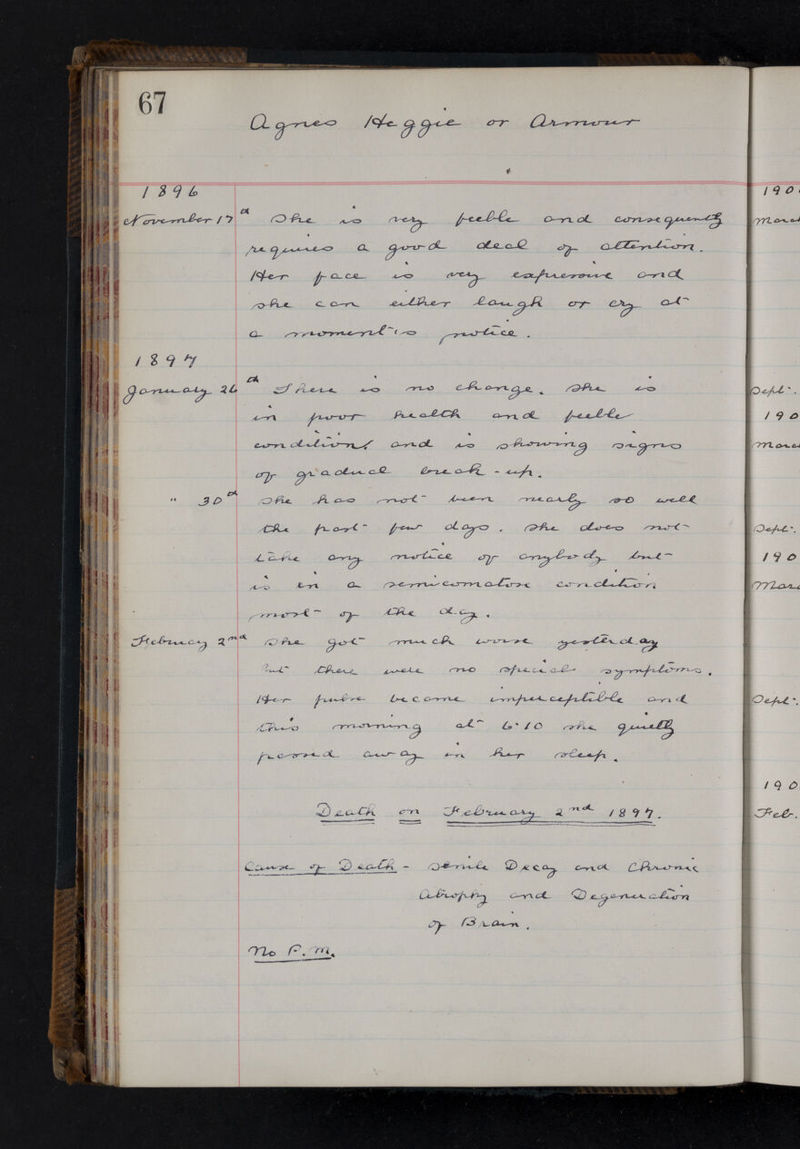 67
Agnes Heggie or Armour
1896
November 17th She is very feeble and consequently
requires a good deal of attention.
Her face is very expressive and
she can either laugh or cry at
a moment's notice.
1897
January 26th There is no change. She is
in poor health and feeble
condition and is showing signs
of gradual break-up.
" 30th She has not been nearly so well
the past few days. She does not
take any notice of anybody but
is in a semicomatose condition
most of the day.
February 2nd She got much worse yesterday
but there were no special symptoms.
Her pulse became imperceptible and
this morning at 6.10 she quietly
passed away in her sleep.
Death on February 2nd 1897.
Cause of Death - Senile Decay and Chronic
Atrophy and Degeneration
of Brain.
No P.M.
190
Sept.
190
Sept.
190
Sept.
190
Feb.